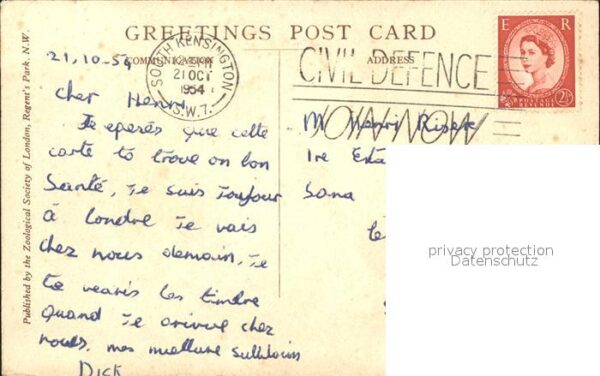 GREETINGS POST CARD
COMMUNICATION
ADDRESS
21.10.54
SOUTH KENSINGTON
21 OCT
1954
S.W.7.
CIVIL DEFENCE
JOIN NOW
E R
POSTAGE
REVENUE
2½
cher Henri
Je eperés que celle
carte to trove on bon
Santé, Je suis Toujour
à Londre Je vais
chez nous demain, Je
te
les timbre
quand Je arivere chez
nous, mes
Dick
M Henri
Ire
Sana
le
Published by the Zoological Society of London, Regent's Park, N.W.
privacy protection
Datenschutz